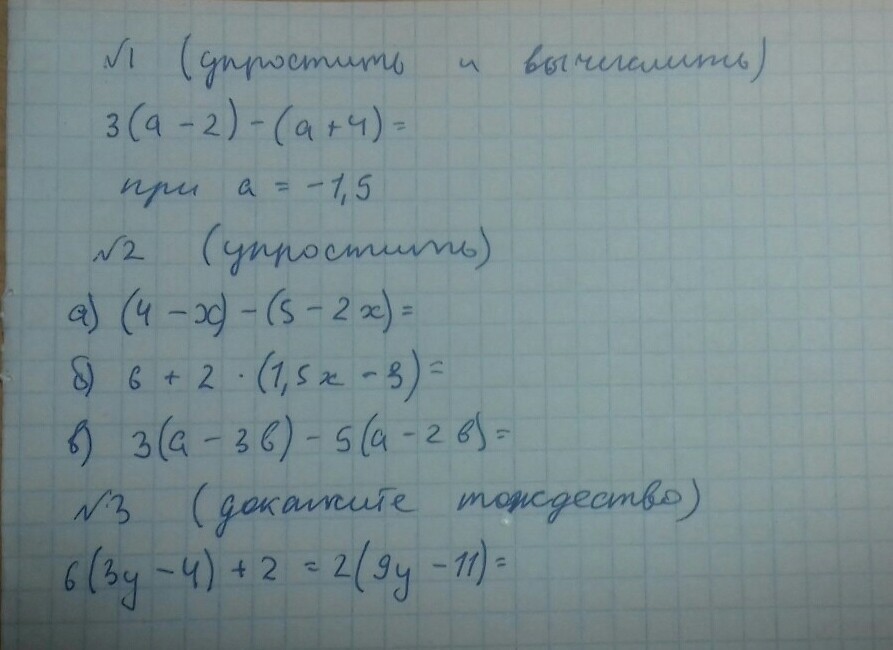 №1 (упростить и вычислить)
3(a - 2) - (a + 4) =
при a = -1,5
№2 (упростить)
а) (4 - x) - (5 - 2x) =
б) 6 + 2 · (1,5x - 3) =
в) 3(a - 3в) - 5(a - 2в) =
№3 (докажите тождество)
6(3y - 4) + 2 = 2(9y - 11) =